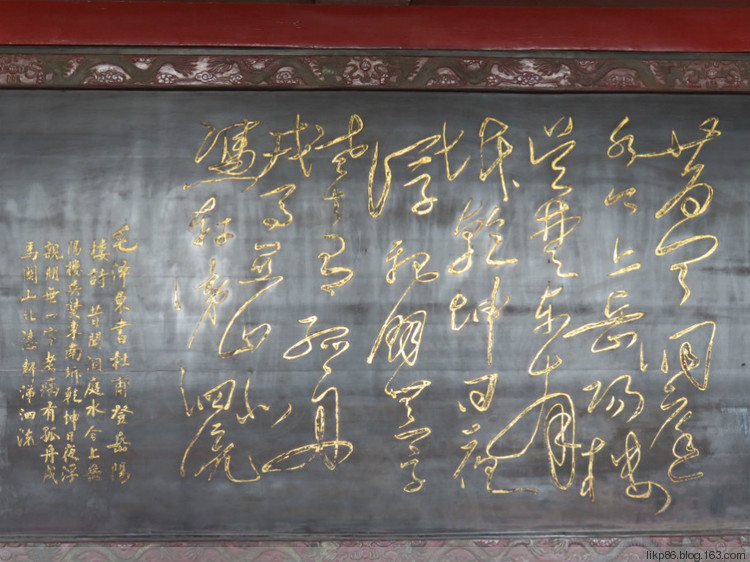 昔闻洞庭
水今上岳阳楼
吴楚东南
坼乾坤日夜
浮親朋無一字
老去有孤舟
戎马关山北
憑軒涕泗流
毛澤東書杜甫登岳陽
楼詩 昔聞洞庭水今上岳
陽樓吳楚東南坼乾坤日夜浮
親朋無一字老病有孤舟戎
馬關山北憑軒涕泗流
likp86.blog.163.com